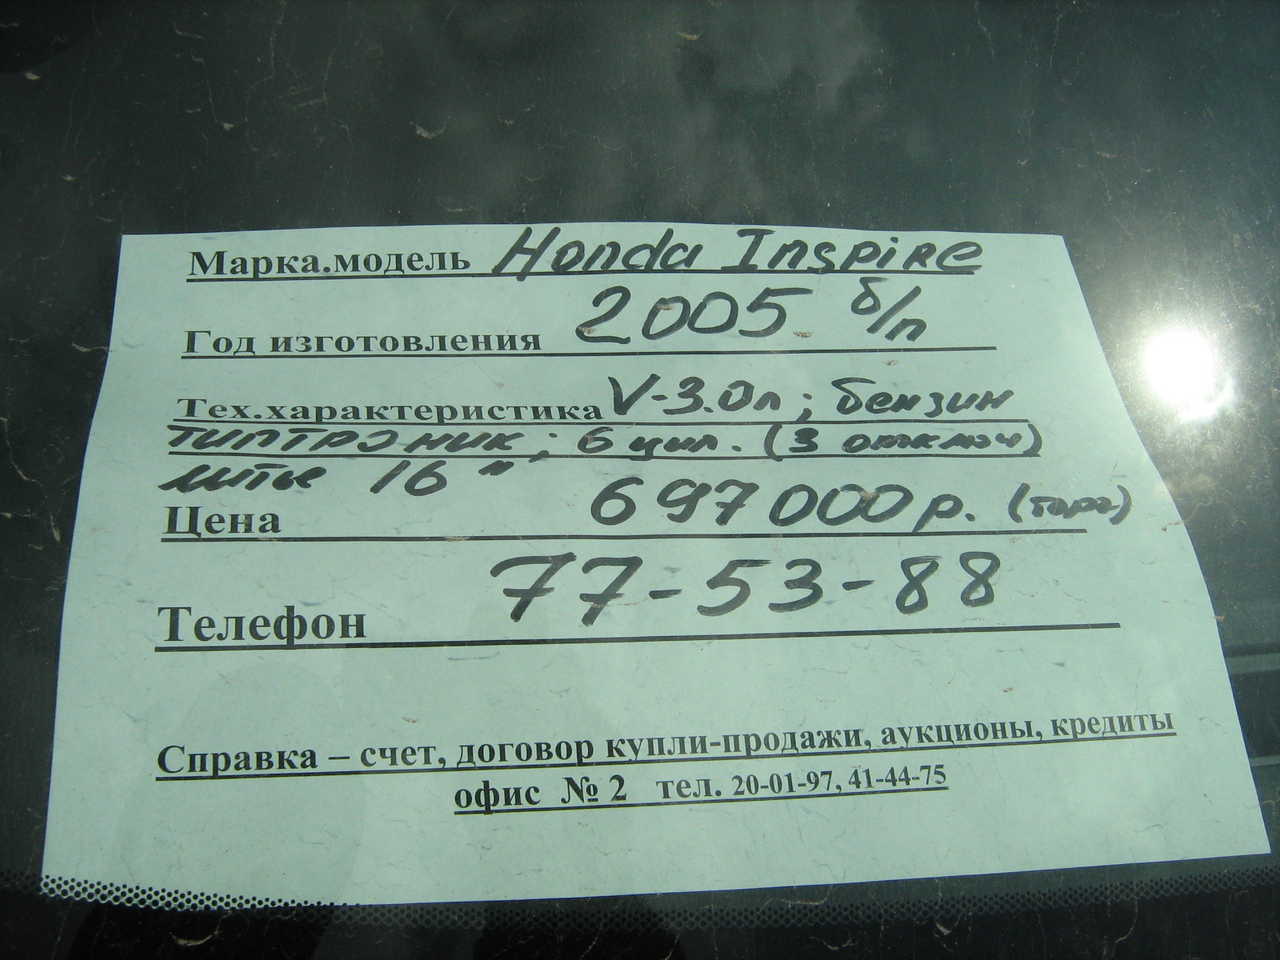 Марка.модель Honda Inspire
Год изготовления 2005 б/п
Тех.характеристика V-3.0л; бензин
типтроник; 6 цил. (3 отключ)
литье 16"
Цена 697000р. (торг)
Телефон 77-53-88
Справка – счет, договор купли-продажи, аукционы, кредиты
офис № 2 тел. 20-01-97, 41-44-75